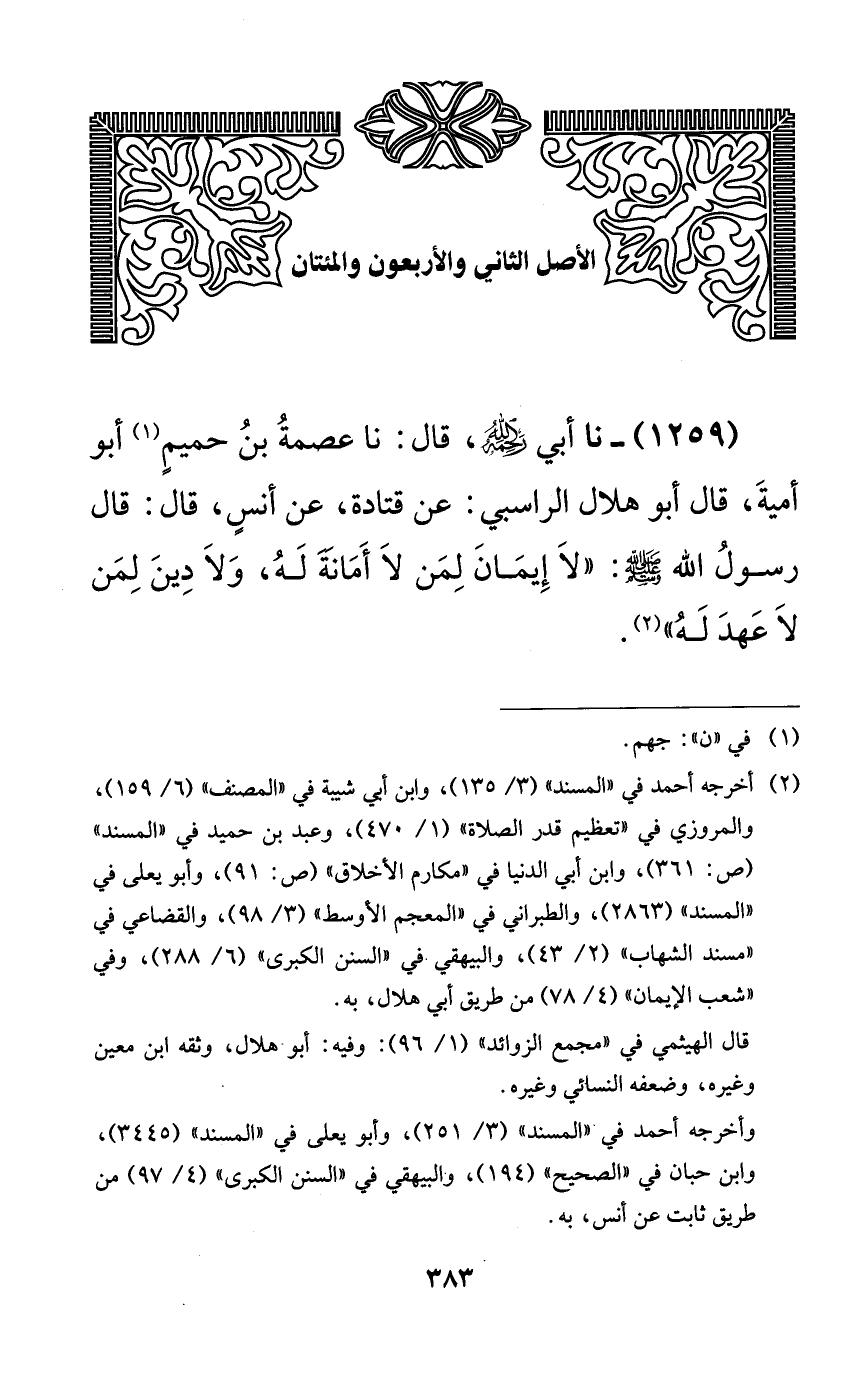 الأصل الثاني والأربعون والمئتان
(١٢٥٩) - نا أبي رحمه الله، قال: نا عصمةُ بنُ حميمٍ(١) أبو
أميةَ، قال أبو هلال الراسبي: عن قتادة، عن أنسٍ، قال: قال
رسولُ الله ﷺ: «لاَ إِيمَانَ لِمَن لاَ أَمَانَةَ لَهُ، وَلاَ دِينَ لِمَن
لاَ عَهدَ لَهُ»(٢).
(١) في «ن»: جهم.
(٢) أخرجه أحمد في «المسند» (٣/ ١٣٥)، وابن أبي شيبة في «المصنف» (٦/ ١٥٩)،
والمروزي في «تعظيم قدر الصلاة» (١/ ٤٧٠)، وعبد بن حميد في «المسند»
(ص: ٣٦١)، وابن أبي الدنيا في «مكارم الأخلاق» (ص: ٩١)، وأبو يعلى في
«المسند» (٢٨٦٣)، والطبراني في «المعجم الأوسط» (٣/ ٩٨)، والقضاعي في
«مسند الشهاب» (٢/ ٤٣)، والبيهقي في «السنن الكبرى» (٦/ ٢٨٨)، وفي
«شعب الإيمان» (٤/ ٧٨) من طريق أبي هلال، به.
قال الهيثمي في «مجمع الزوائد» (١/ ٩٦): وفيه: أبو هلال، وثقه ابن معين
وغيره، وضعفه النسائي وغيره.
وأخرجه أحمد في «المسند» (٣/ ٢٥١)، وأبو يعلى في «المسند» (٣٤٤٥)،
وابن حبان في «الصحيح» (١٩٤)، والبيهقي في «السنن الكبرى» (٤/ ٩٧) من
طريق ثابت عن أنس، به.
٣٨٣